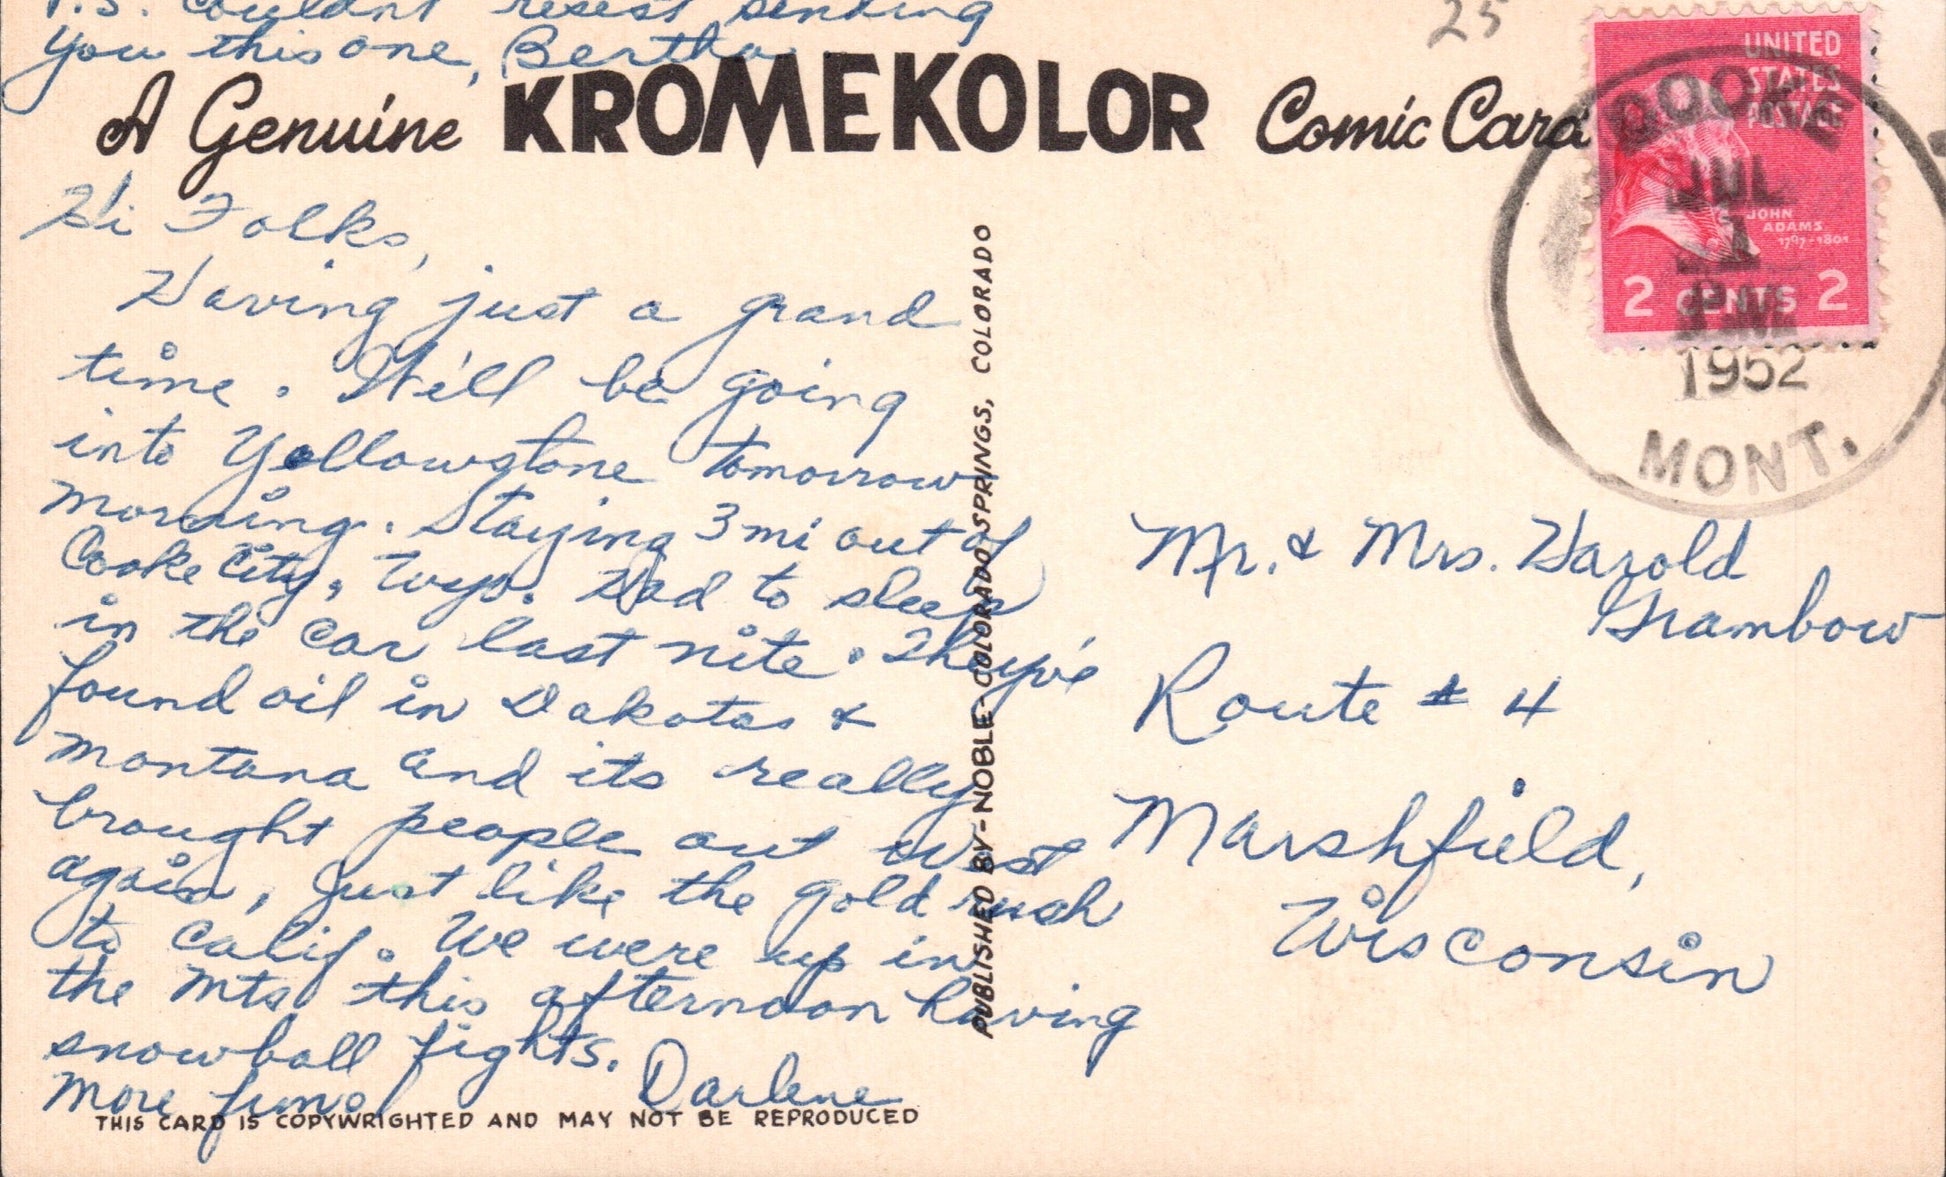 P.S. Couldn't resist sending
you this one, Bertha
25
A Genuine KROMEKOLOR Comic Card
UNITED
STATES
POSTAGE
JOHN
ADAMS
1797-1801
2 CENTS 2
COOKE
JUL
1
PM
1952
MONT.
Hi Folks,
Having just a grand
time. We'll be going
into Yellowstone tomorrow
morning. Staying 3 mi out of
Cooke City, Wyo. Had to sleep
in the car last nite. They've
found oil in Dakotas &
Montana and its really
brought people out west
again, just like the gold rush
to Calif. We were up in
the mts this afternoon having
snowball fights.
More fun!
Darlene
PUBLISHED BY-NOBLE-COLORADO SPRINGS, COLORADO
Mr. & Mrs. Harold
Grambow
Route # 4
Marshfield,
Wisconsin
THIS CARD IS COPYWRIGHTED AND MAY NOT BE REPRODUCED